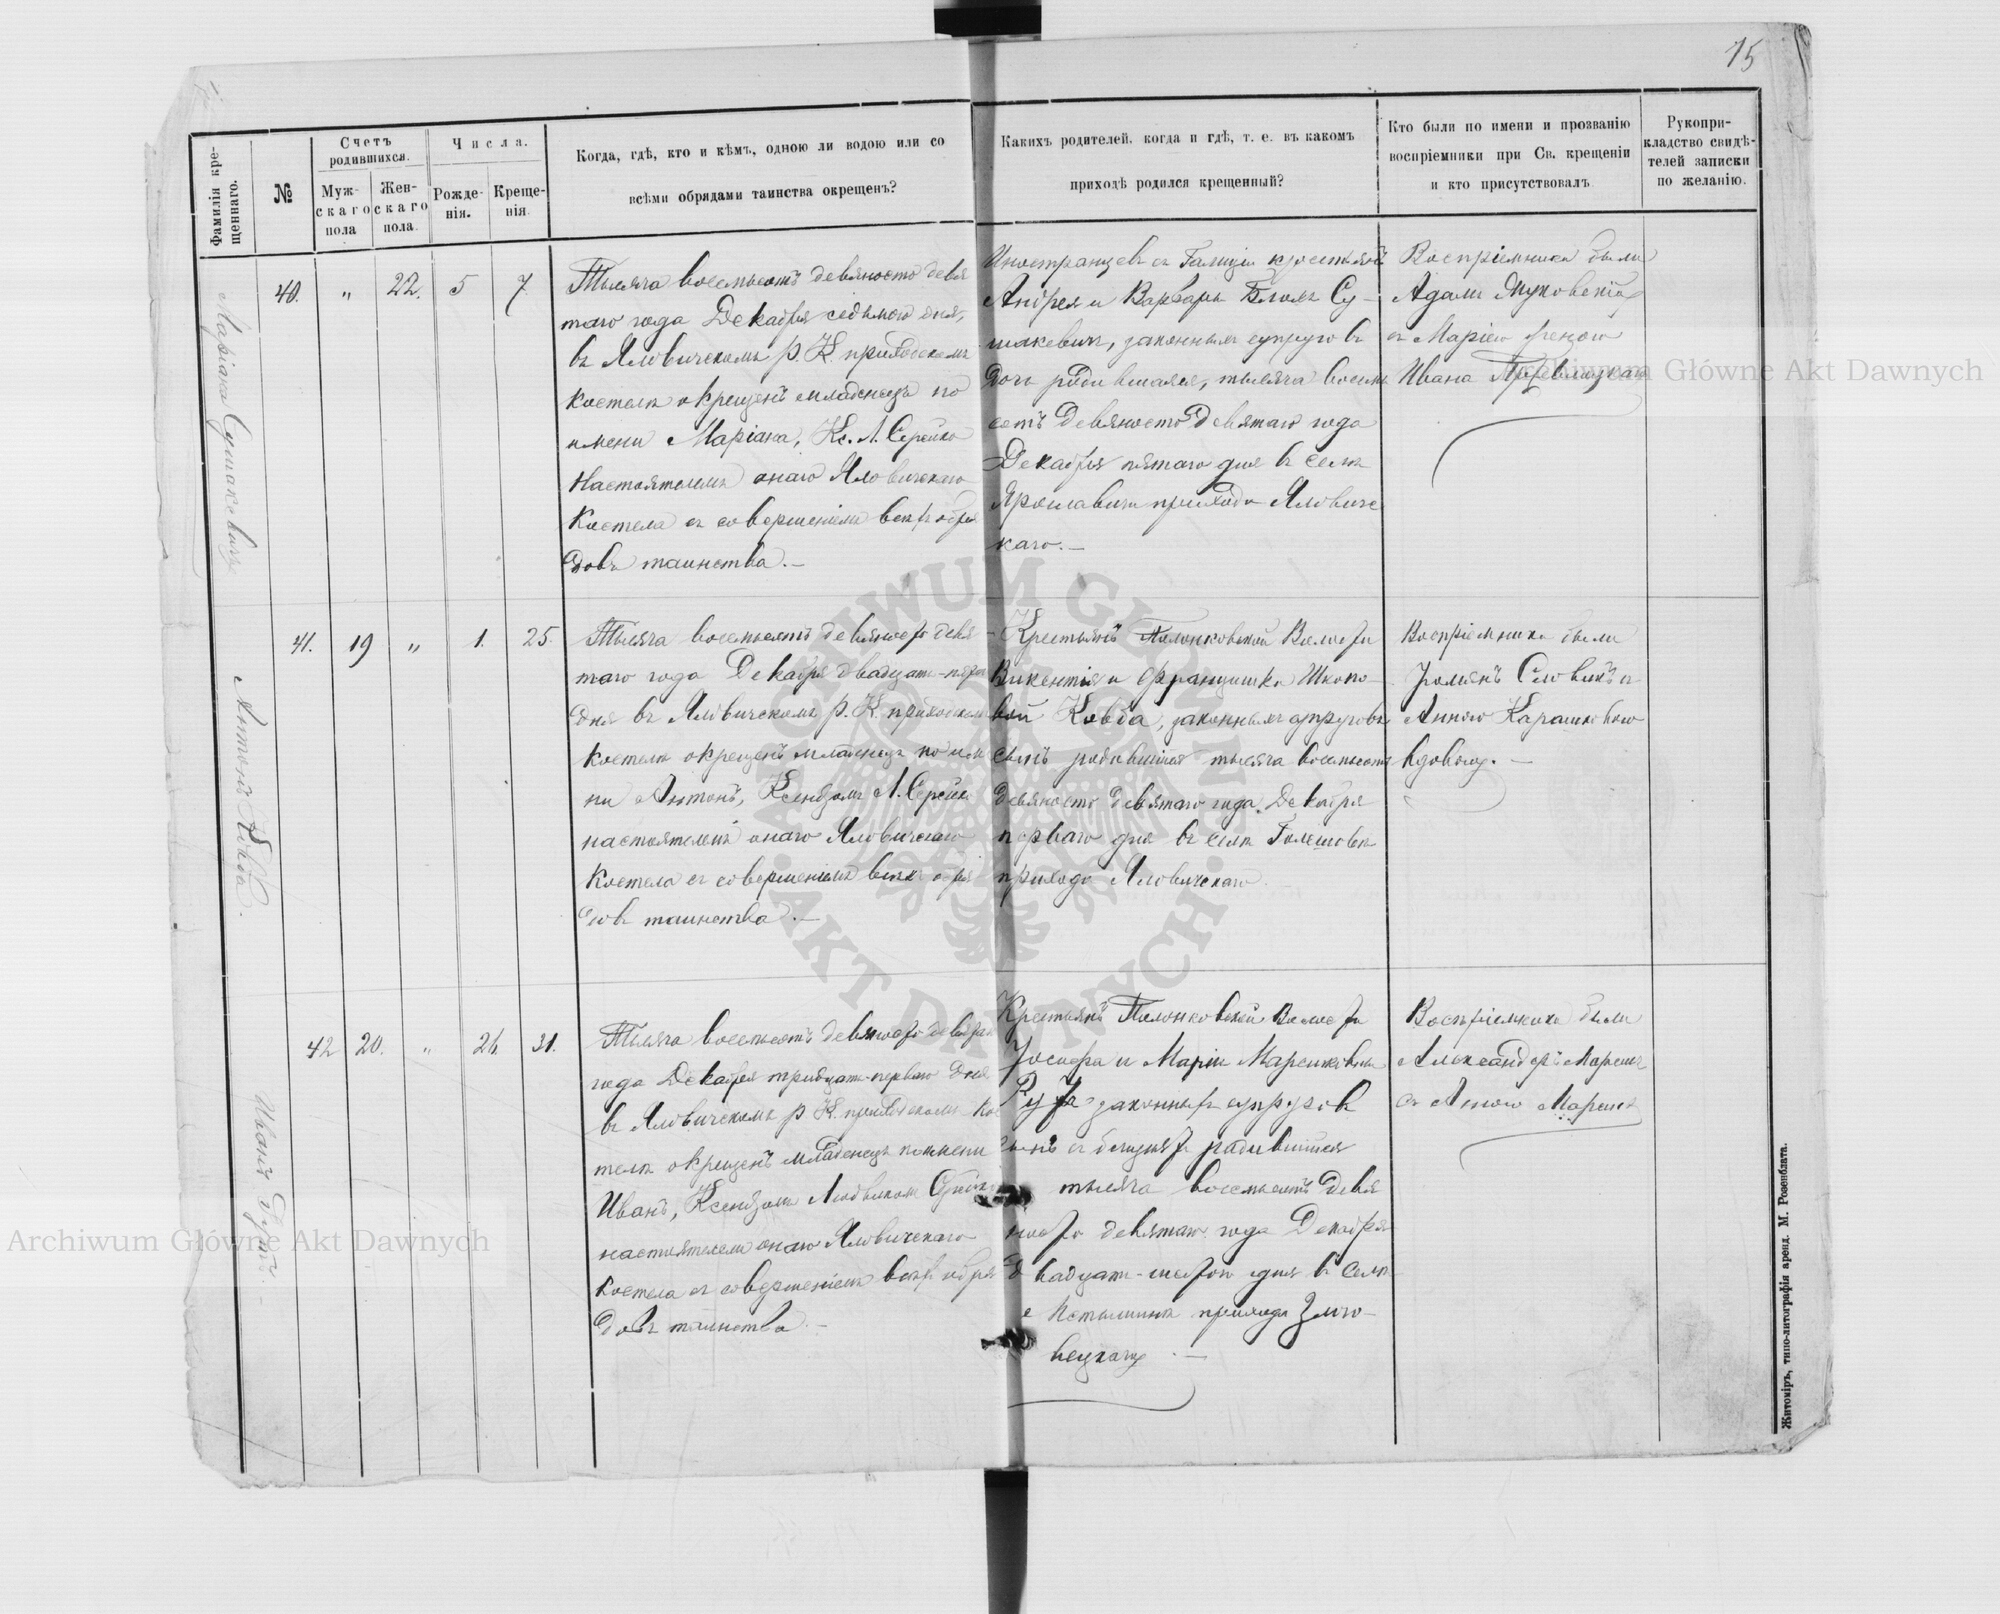 15
Фамилія крещеннаго.
№
Счетъ родившихся.
Мужскаго пола
Женскаго пола.
Числа.
Рожденія.
Крещенія.
Когда, гдѣ, кто и кѣмъ, одною ли водою или со
всѣми обрядами таинства окрещенъ?
Какихъ родителей, когда и гдѣ, т. е. въ какомъ
приходѣ родился крещенный?
Кто были по имени и прозванію
воспріемники при Св. крещеніи
и кто присутствовалъ.
Рукопри-
кладство свидѣ-
телей записки
по желанію.
Маріана Сушакевичъ
40. " 22. 5 7.
Тысяча восемьсотъ девяносто девя
таго года Декабря седьмого дня,
въ Яловичскомъ Р. К. приходскомъ
костелѣ окрещенъ младенецъ по
имени Маріана, Кс. Л. Серейко
Настоятелемъ онаго Яловичскаго
Костела съ совершеніемъ всѣхъ обря
довъ таинства.—
Иностранцевъ съ Галиціи крестьянъ
Андрея и Варвары Су-
шакевичъ, законныхъ супруговъ
дочь родившаяся, тысяча восемь
сотъ девяносто девятаго года
Декабря пятаго дня въ селѣ
Ярославичи прихода Яловичс
каго.—
Воспріемники были
Адамъ
съ Маріею женою
Ивана
Антонъ Ковба.
41. 19 " 1. 25.
Тысяча восемьсотъ девяносто девя
таго года Декабря двадцать-пятаго
дня въ Яловичскомъ Р. К. приходскомъ
костелѣ окрещенъ младенецъ по име
ни Антонъ, Ксендзомъ Л. Серейко
настоятелемъ онаго Яловичскаго
Костела съ совершеніемъ всѣхъ обря
довъ таинства.—
Крестьянъ Полонковской Волости
Викентія и Францишки Шкопо-
вой Ковба, законныхъ супруговъ
сынъ родившійся тысяча восемьсотъ
девяносто девятаго года Декабря
перваго дня въ селѣ
прихода Яловичскаго.
Воспріемники были
Словикъ съ
Анною
вдовою.—
Иванъ
42 20. " 26. 31.
Тысяча восемьсотъ девяносто девятаго
года Декабря тридцать-перваго дня
въ Яловичскомъ Р. К. приходскомъ кос
телѣ окрещенъ младенецъ по имени
Иванъ, Ксендзомъ Людвикомъ Серейко
настоятелемъ онаго Яловичскаго
костела съ совершеніемъ всѣхъ обря
довъ таинства.—
Крестьянъ Полонковской Волости
Іосифа и Маріи
законныхъ супруговъ
сынъ родившійся
тысяча восемьсотъ девя
носто девятаго года Декабря
двадцать-шестого дня въ селѣ
прихода

Воспріемники были
Александръ
съ
Житоміръ, типо-литографія аренд. М. Розенблата.
Archiwum Główne Akt Dawnych
Archiwum Główne Akt Dawnych
ARCHIWUM GŁÓWNE
· AKT DAWNYCH ·